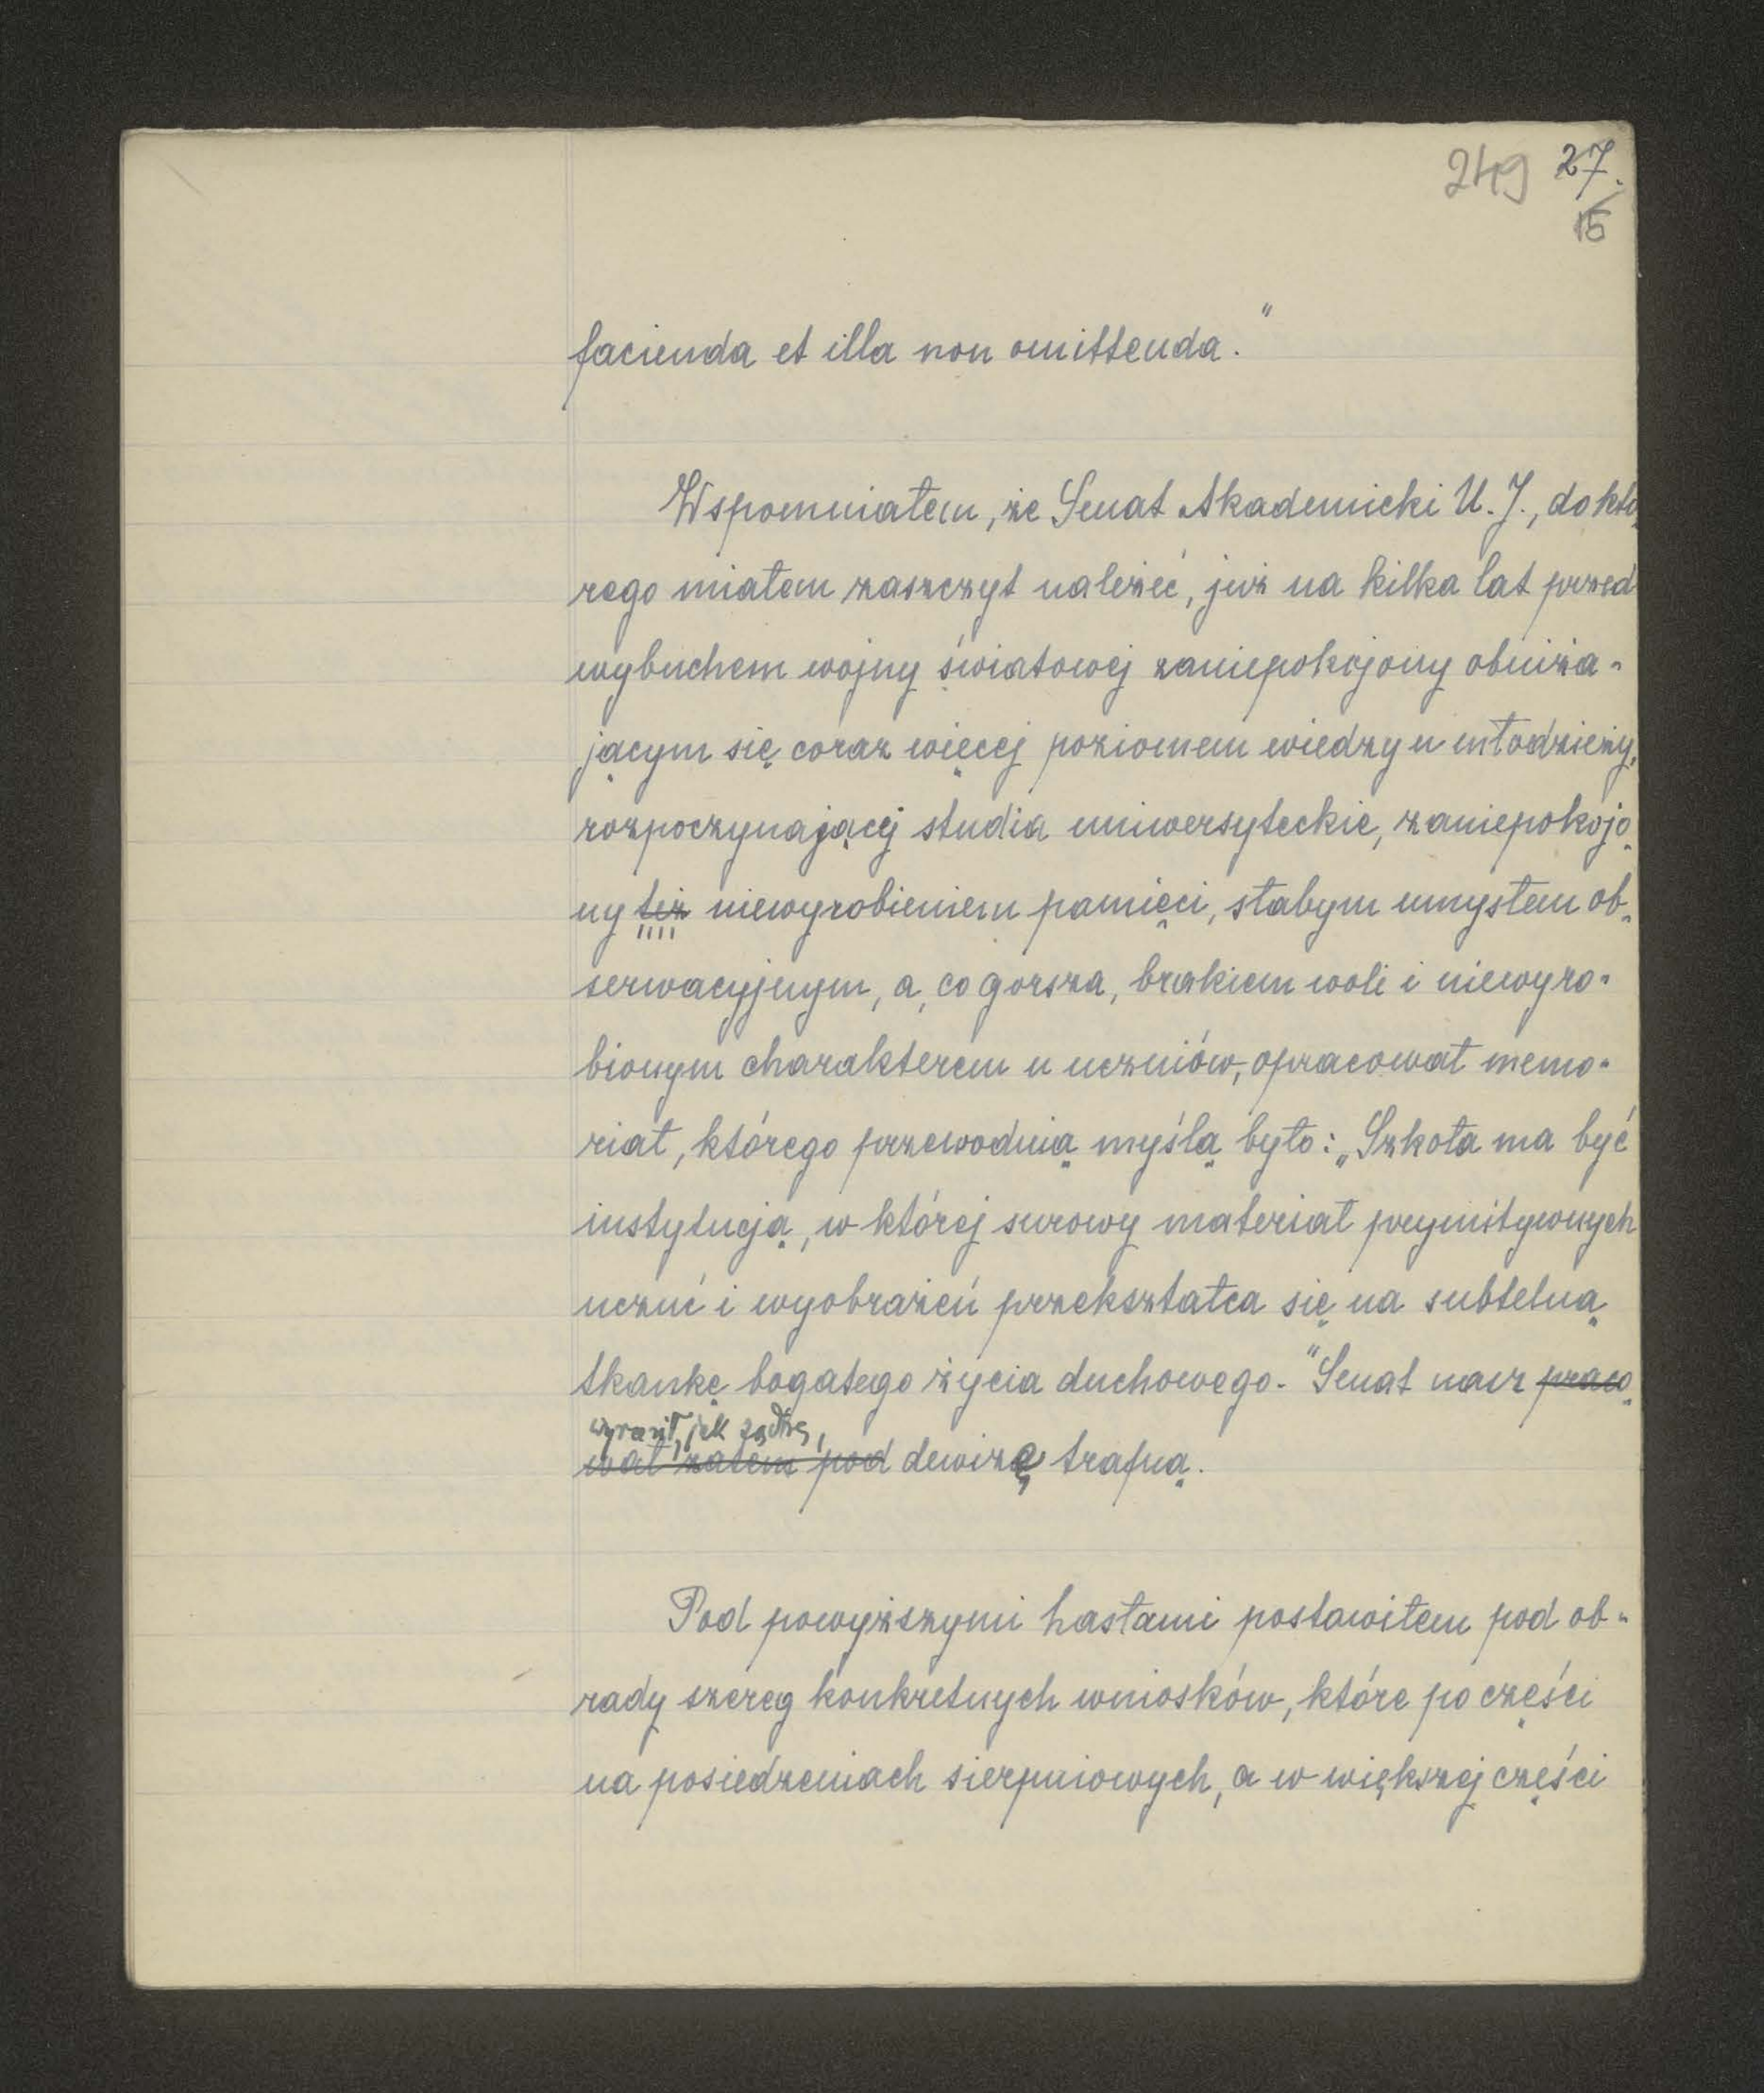 249 27.
15
facienda et illa non omittenda."
Wspomniałem, że Senat Akademicki U. J., do któ-
rego miałem zaszczyt należeć, już na kilka lat przed
wybuchem wojny światowej zaniepokojony obniża-
jącym się coraz więcej poziomem wiedzy u młodzieży,
rozpoczynającej studia uniwersyteckie, zaniepokojo-
ny też niewyrobieniem pamięci, słabym umysłem ob-
serwacyjnym, a, co gorsza, brakiem woli i niewyro-
bionym charakterem u uczniów, opracował memo-
riał, którego przewodnią myślą było: „Szkoła ma być
instytucją, w której surowy materiał prymitywnych
uczuć i wyobrażeń przekształca się na subtelną
tkankę bogatego życia duchowego." Senat nasz praco-
wyraził, jak sądzę,
wał zatem pod dewizę trafną.
Pod powyższymi hasłami postawiłem pod ob-
rady szereg konkretnych wniosków, które po części
na posiedzeniach sierpniowych, a w większej części